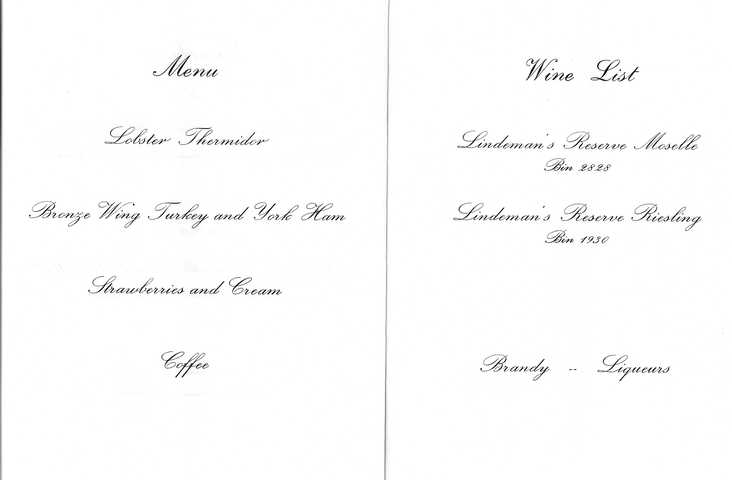 Menu
Lobster Thermidor
Bronze Wing Turkey and York Ham
Strawberries and Cream
Coffee
Wine List
Lindeman's Reserve Moselle
Bin 2828
Lindeman's Reserve Riesling
Bin 1930
Brandy -- Liqueurs